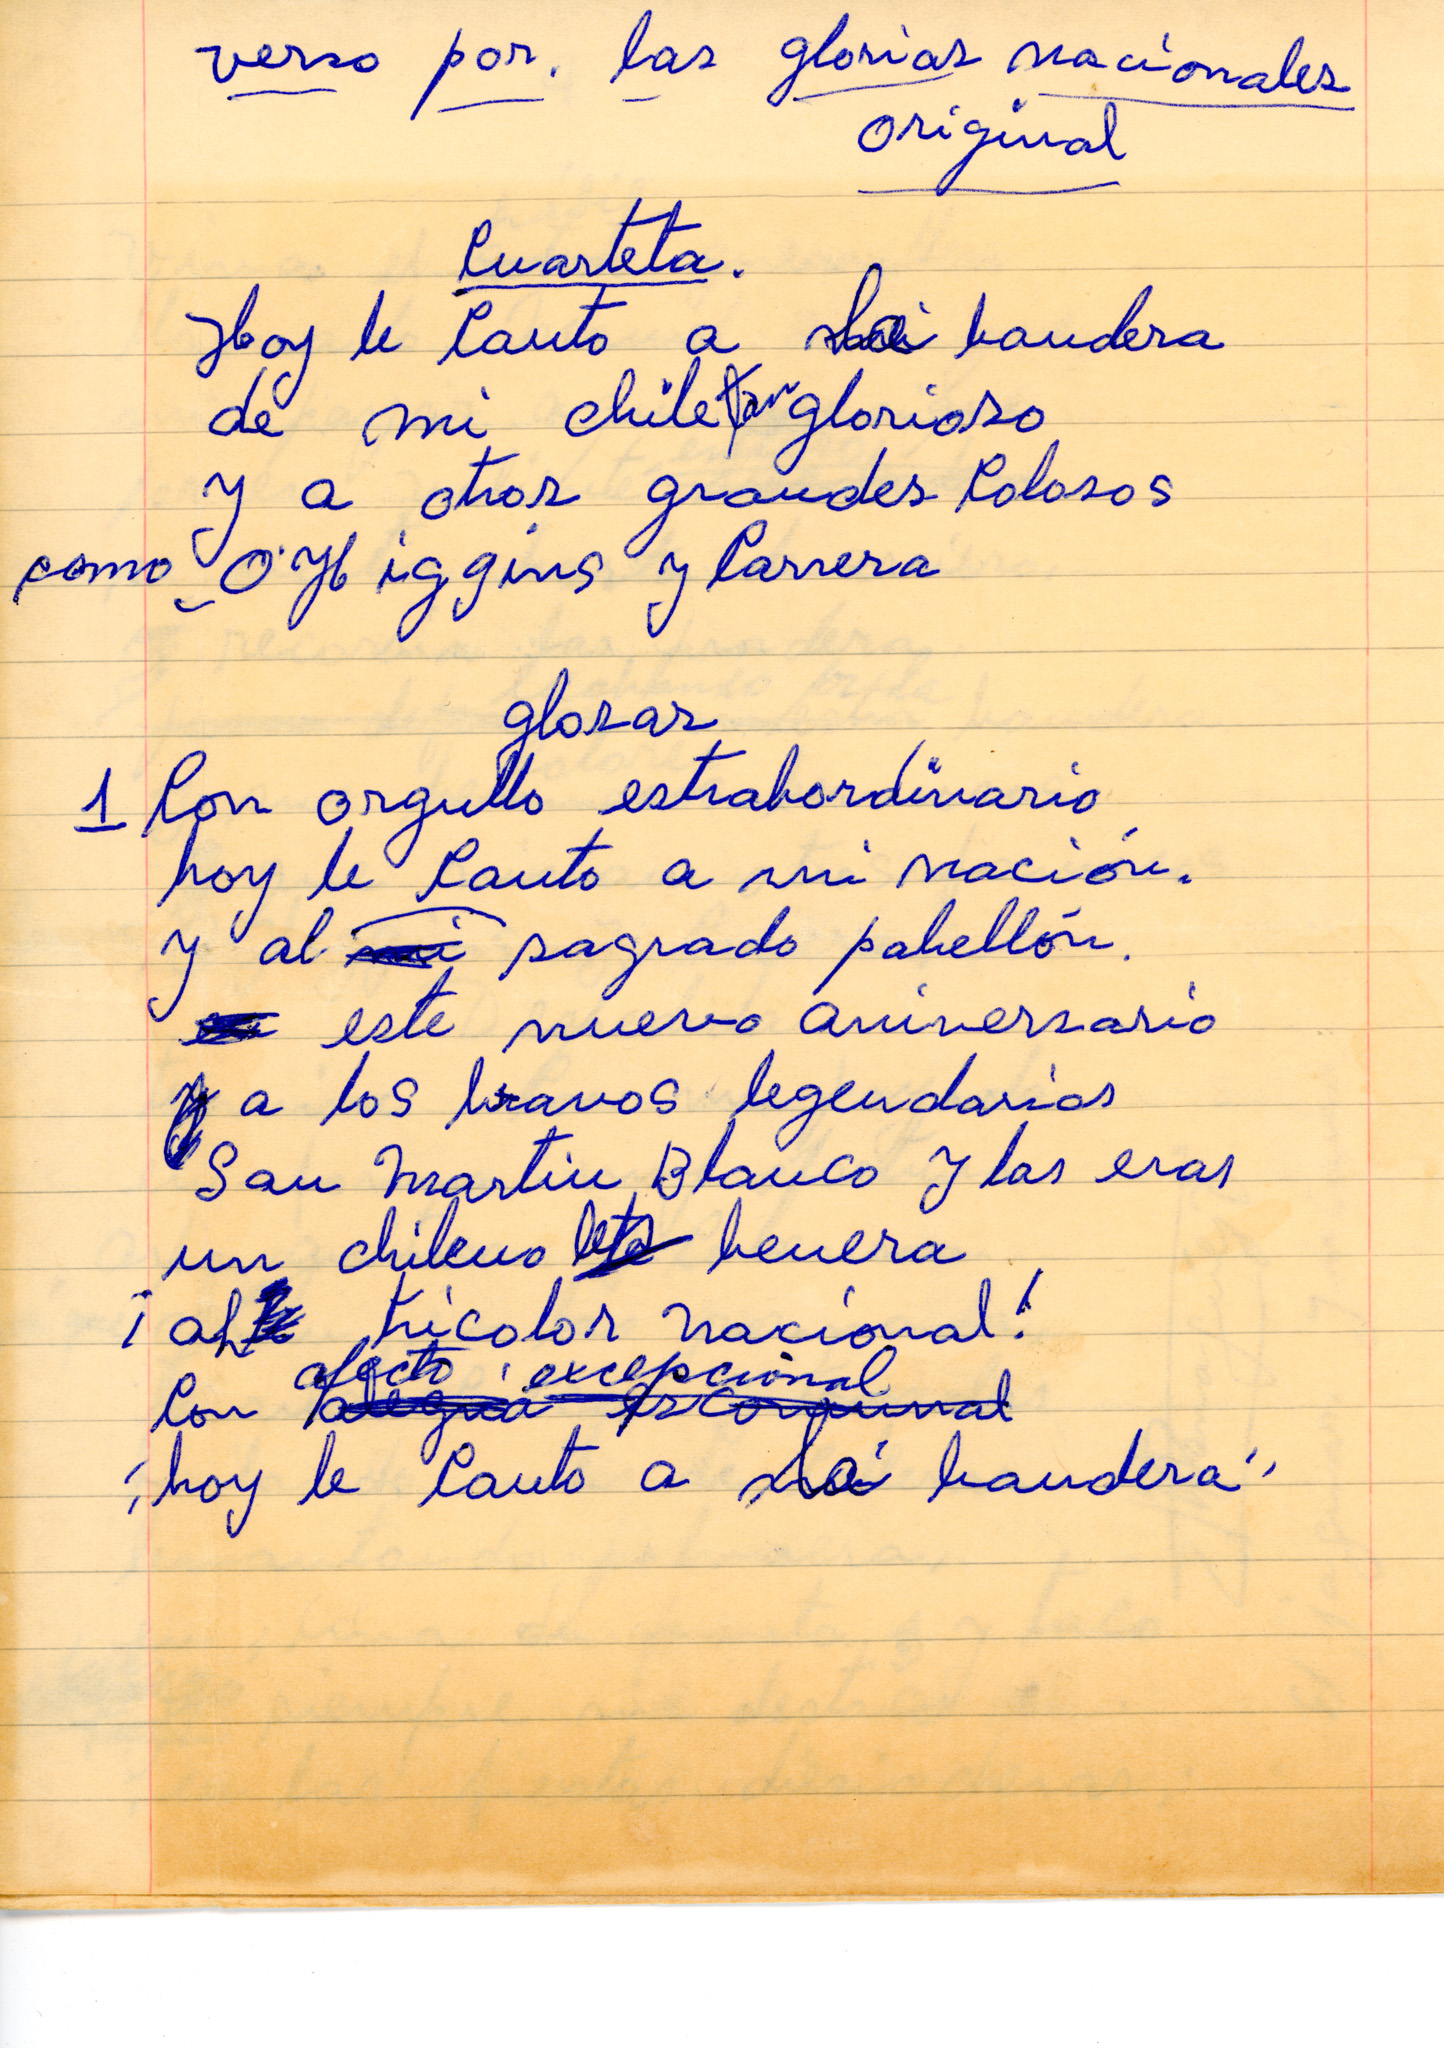 verso por. las glorias nacionales
original
Cuarteta.
Hoy le Canto a la bandera
de mi chile tan glorioso
y a otros grandes Colosos
como O'Higgins y Carrera
glosas
1 Con orgullo estrahordinario
hoy le Canto a mi nación.
y al sagrado pabellón.
este nuevo aniversario
y a los bravos legendarios
San Martin Blanco y las eras
un chileno benera
¡al tricolor nacional!
afecto excepcional
Con alegria escomunal
"hoy le Canto a la bandera"